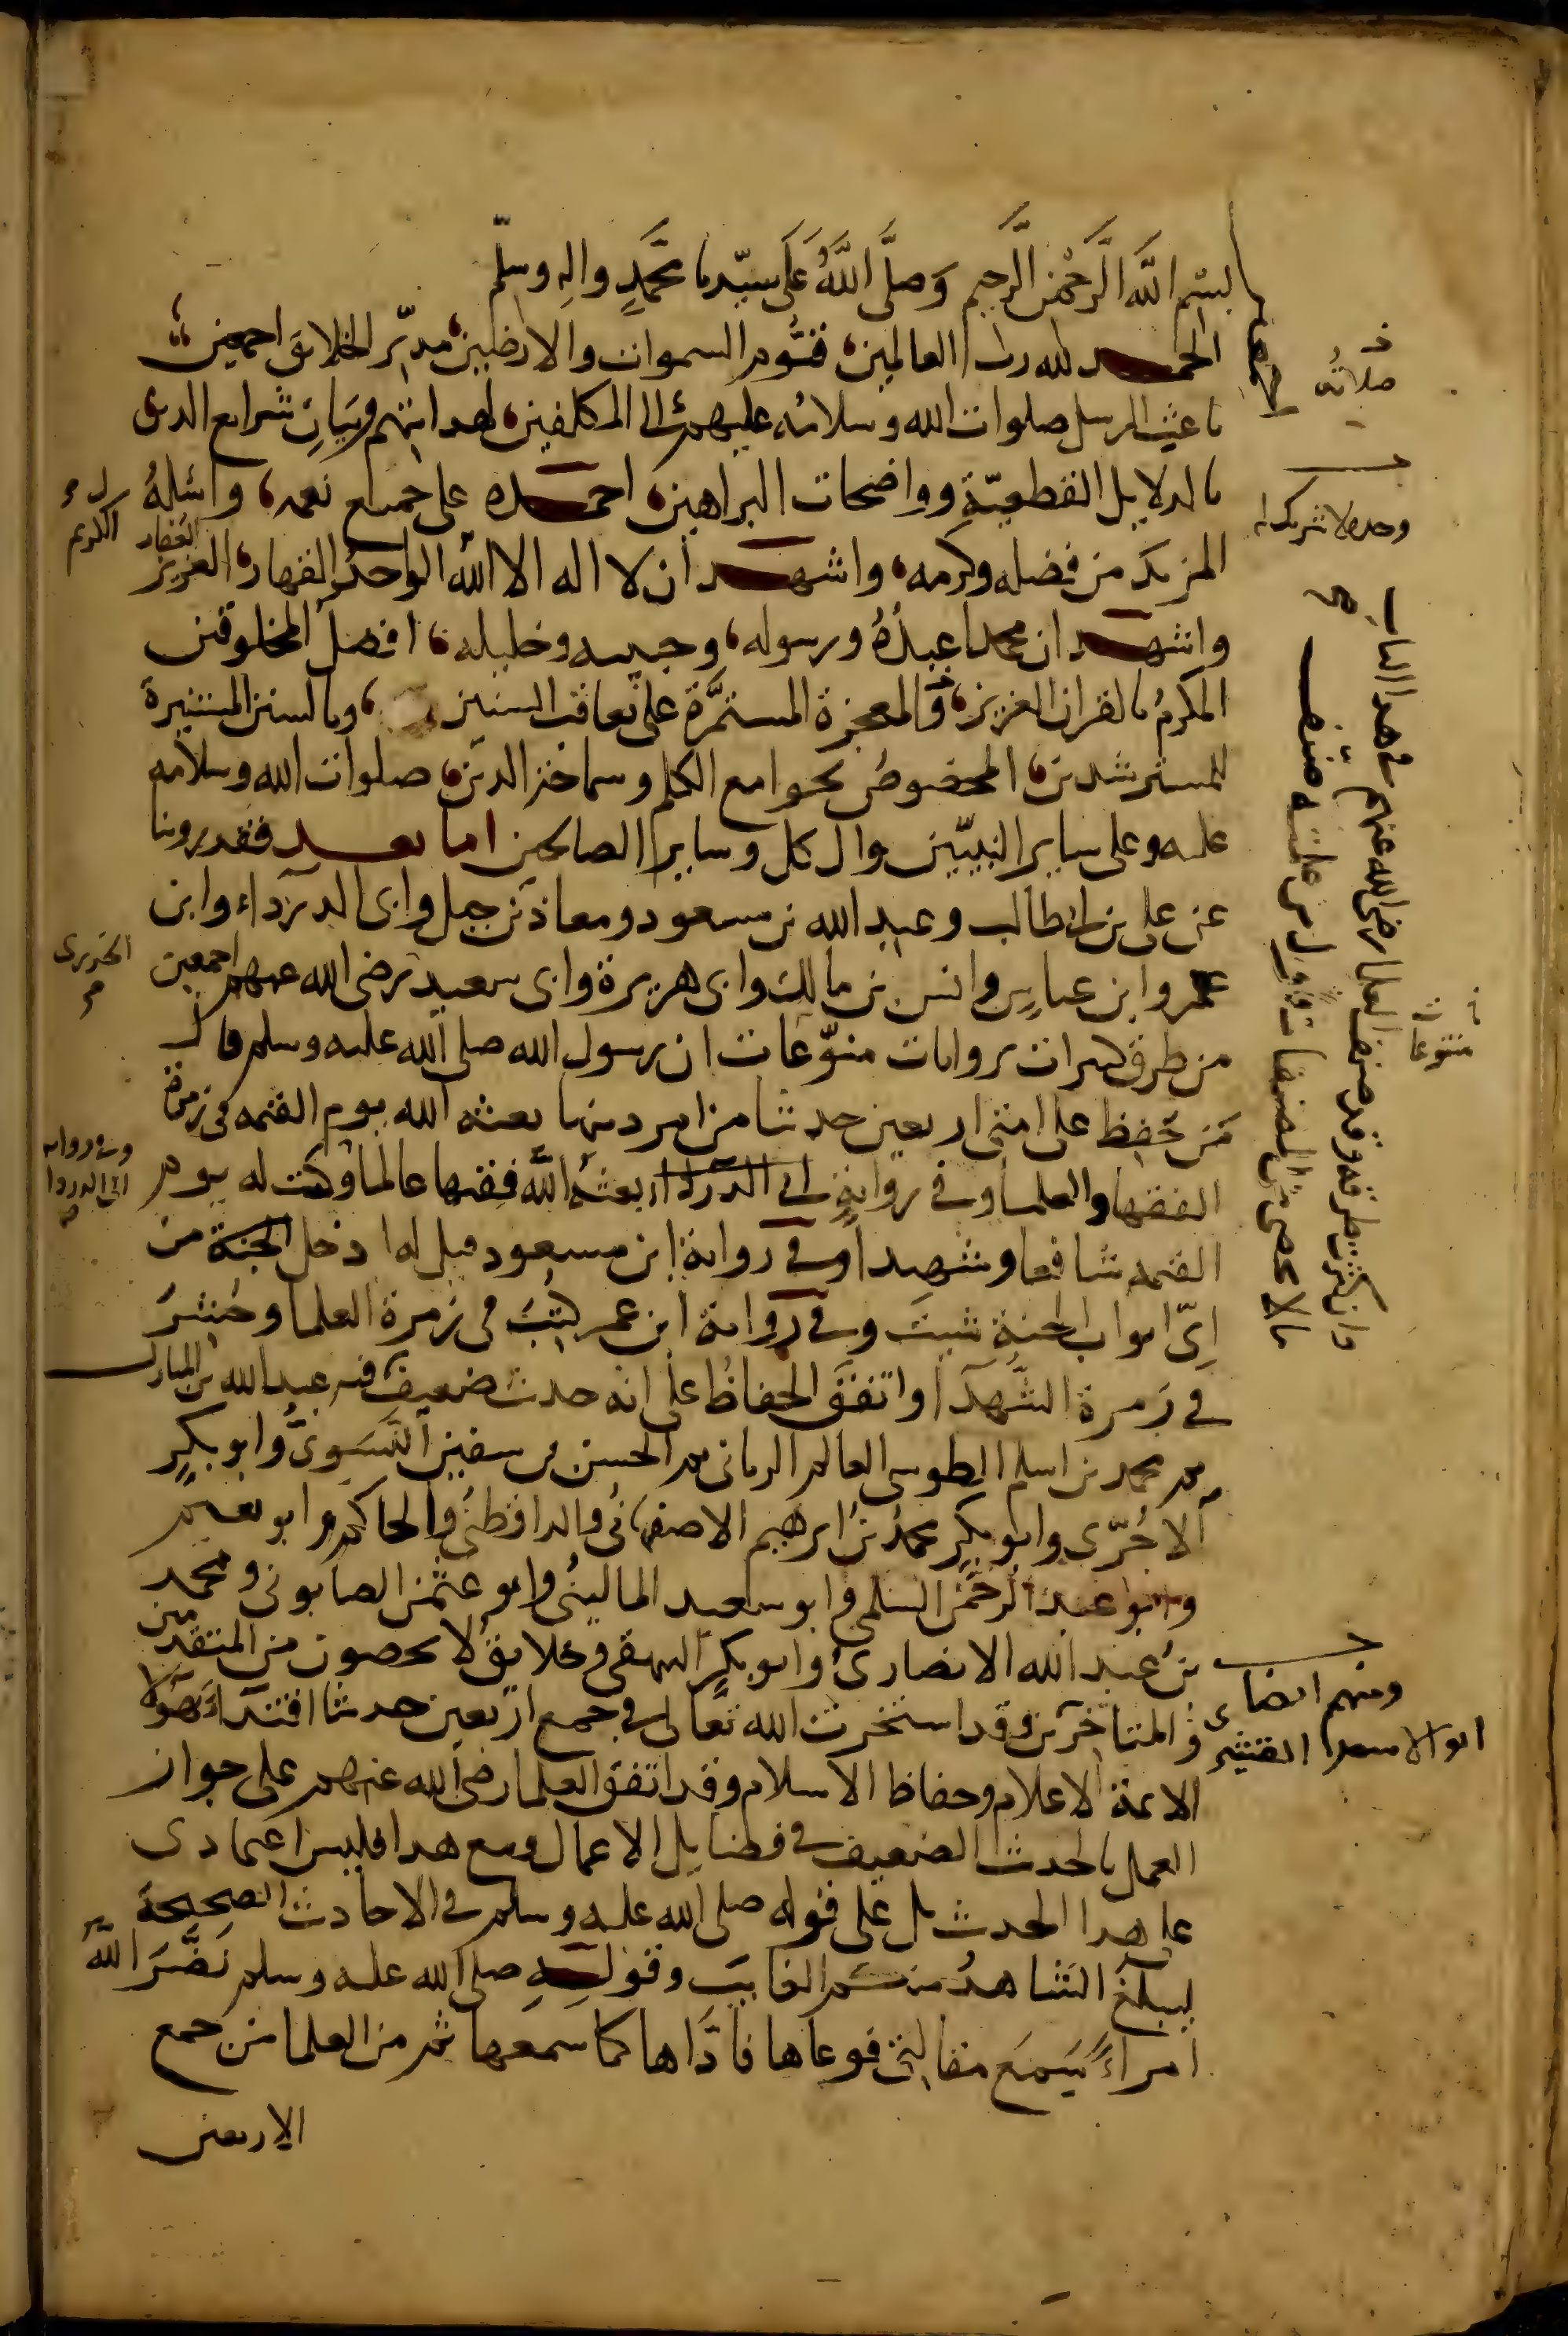 بسم الله الرحمن الرحيم وصلى الله على سيدنا محمد واله وسلم
الحمد لله رب العالمين، قيوم السموات والارضين، مدبر الخلائق اجمعين
باعث الرسل صلوات الله وسلامه عليهم الى المكلفين، لهدايتهم وبيان شرايع الدين
بالدلايل القطعية وواضحات البراهين، احمده على جميع نعمه، واسئله
المزيد من فضله وكرمه، واشهد ان لا اله الا الله الواحد القهار، العزيز
الغفار
الكريم
واشهد ان محمدا عبده ورسوله، وحبيبه وخليله، افضل المخلوقين
المكرم بالقران العزيز، والمعجزة المستمرة على تعاقب السنين، وبالسنن المستنيرة
للمسترشدين، المخصوص بجوامع الكلم وسماحة الدين، صلوات الله وسلامه
عليه وعلى ساير النبيين وال كل وساير الصالحين اما بعد فقد روينا
عن علي بن ابي طالب وعبد الله بن مسعود ومعاذ بن جبل وابي الدرداء وابن
عمر وابن عباس وانس بن مالك وابي هريرة وابي سعيد رضي الله عنهم اجمعين
الخدري
من طرق كثيرات بروايات منوعات ان رسول الله صلى الله عليه وسلم قال
من حفظ على امتي اربعين حديثا من امر دينها بعثه الله يوم القيمة في زمرة
الفقها والعلما وفي رواية ابي الدرداء بعثه الله فقيها عالما وكنت له يوم
وفي رواية
ابي الدردا
القيمة شافعا وشهيدا وفي رواية ابن مسعود قيل له ادخل الجنة من
اي ابواب الجنة شيت وفي رواية ابن عمر كتب في زمرة العلما وحشر
في زمرة الشهدا واتفق الحفاظ على انه حديث ضعيف عبد الله بن المبارك
محمد بن اسلم الطوسي العالم الرباني الحسن بن سفين النسوي وابو بكر
الاجري وابو بكر محمد بن ابرهيم الاصفهاني والدارقطني والحاكم وابو نعيم
وابو عبد الرحمن السلمي وابو سعيد الماليني وابو عثمن الصابوني ومحمد
بن عبد الله الانصاري وابو بكر البيهقي وخلايق لا يحصون من المتقدمين
والمتاخرين وقد استخرت الله تعالى في جمع اربعين حديثا اقتداء بهولا
الايمة الاعلام وحفاظ الاسلام وقد اتفق العلما رضي الله عنهم على جواز
العمل بالحديث الضعيف في فضايل الاعمال ومع هدا فليس اعتمادي
على هدا الحديث بل على قوله صلى الله عليه وسلم في الاحاديث الصحيحة
ليبلغ الشاهد منكم الغايب وقوله صلى الله عليه وسلم نضر الله
امراء سمع مقالتي فوعاها فاداها كما سمعها ثم من العلما من جمع
الاربعين
صلاته
وحده لا شريك له
منوعا
ومنهم ايضا
ابو الاسعد القشيري
في هدا الباب